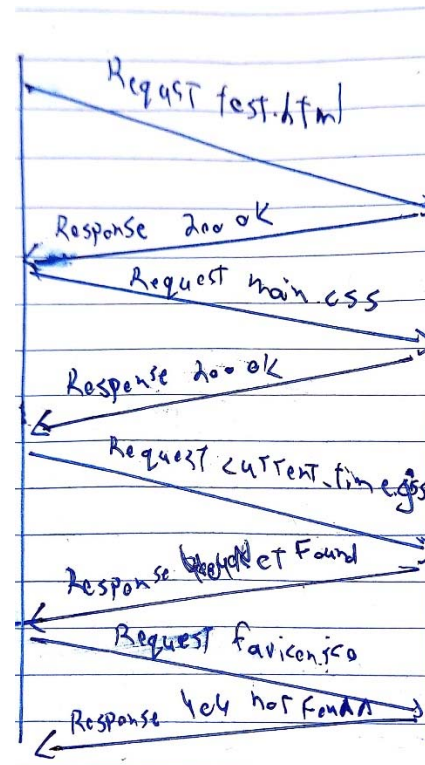 Requst test.html
Response 200 ok
Request main.css
Response 200 ok
Request current_time.
Response Not Found
Request favicon.ico
Response 404 not Found